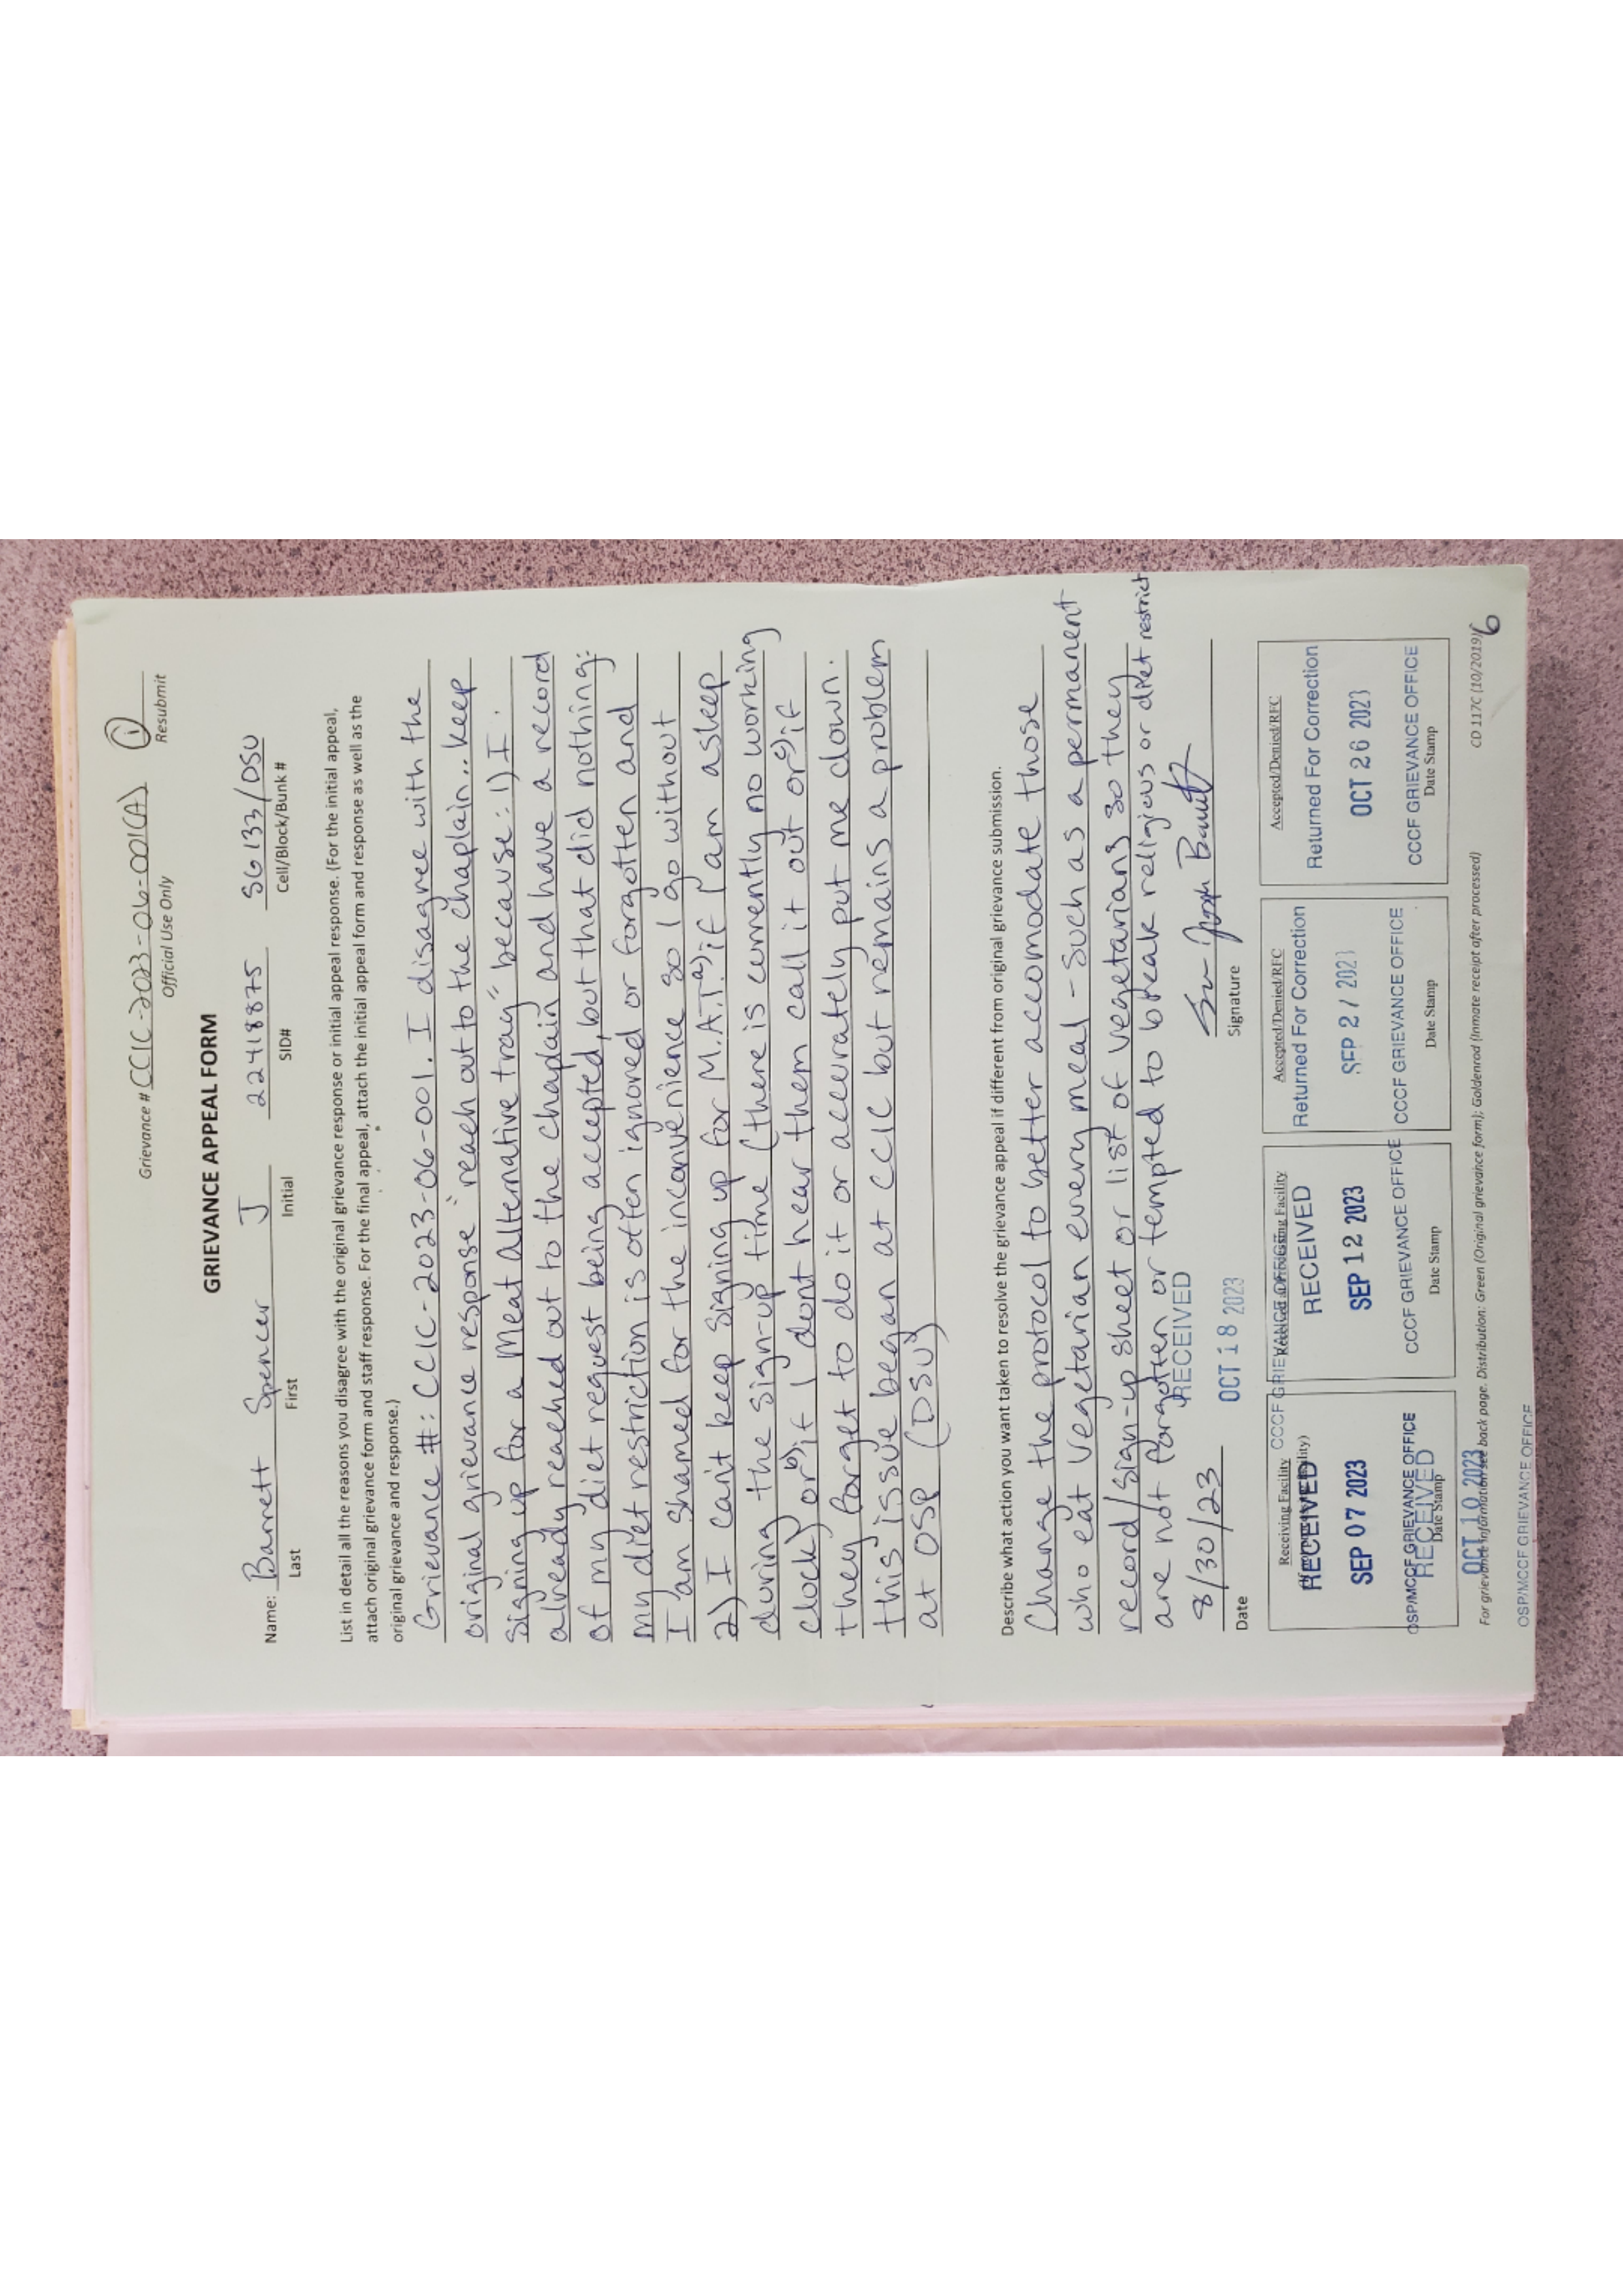 Grievance # CCIC-2023-06-001(A)
Official Use Only
1
Resubmit
GRIEVANCE APPEAL FORM
Name: Barrett Spencer J 22418875 SG133/DSU
Last First Initial SID# Cell/Block/Bunk #
List in detail all the reasons you disagree with the original grievance response or initial appeal response. (For the initial appeal,
attach original grievance form and staff response. For the final appeal, attach the initial appeal form and response as well as the
original grievance and response.)
Grievance #: CCIC-2023-06-001. I disagree with the
original grievance response "reach out to the chaplain... keep
signing up for a Meat Alternative tray" because: 1) I
already reached out to the chaplain and have a record
of my diet request being accepted, but that did nothing:
my diet restriction is often ignored or forgotten and
I am shamed for the inconvenience so I go without
2) I can't keep signing up for M.A.T. a) if I am asleep
during the sign-up time (there is currently no working
clock) or b) if I dont hear them call it out or c) if
they forget to do it or accurately put me down.
this issue began at CCIC but remains a problem
at OSP (DSU)
Describe what action you want taken to resolve the grievance appeal if different from original grievance submission.
Change the protocol to better accomodate those
who eat Vegetarian every meal - such as a permanent
record/sign-up sheet or list of vegetarians so they
are not forgotten or tempted to break religious or diet restrict
8/30/23
Date
RECEIVED
OCT 18 2023
CCCF GRIEVANCE OFFICE
Signature
Receiving Facility
RECEIVED
SEP 07 2023
OSP/MCCF GRIEVANCE OFFICE
Date Stamp
RECEIVED
OCT 10 2023
OSP/MCCF GRIEVANCE OFFICE
RECEIVED
SEP 12 2023
CCCF GRIEVANCE OFFICE
Date Stamp
Accepted/Denied/RFC
Returned For Correction
SEP 27 2023
CCCF GRIEVANCE OFFICE
Date Stamp
Accepted/Denied/RFC
Returned For Correction
OCT 26 2023
CCCF GRIEVANCE OFFICE
Date Stamp
For grievance information see back page. Distribution: Green (Original grievance form); Goldenrod (Inmate receipt after processed)
CD 117C (10/2019)
6